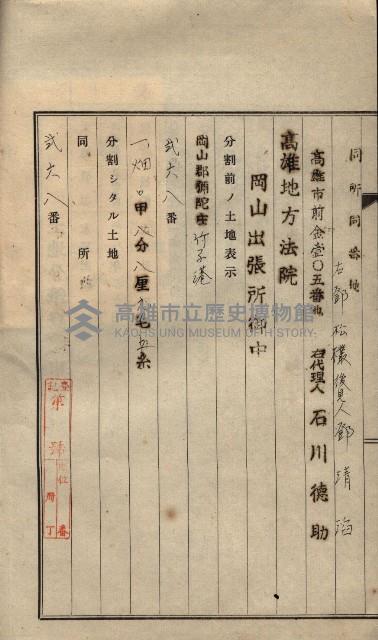 同所同番地
右鄧松欉後見人鄧清海
高雄市前金壹〇五番地
右代理人 石川德助
高雄地方法院
岡山出張所御中
分割前ノ土地表示
岡山郡彌陀庄竹子港
弍六八番
一畑〇甲八分八厘九毛五糸
分割シタル土地
同 所
弍六八番
登記
第 號
位
冊
番
丁
高雄市立歷史博物館
KAOHSIUNG MUSEUM OF HISTORY